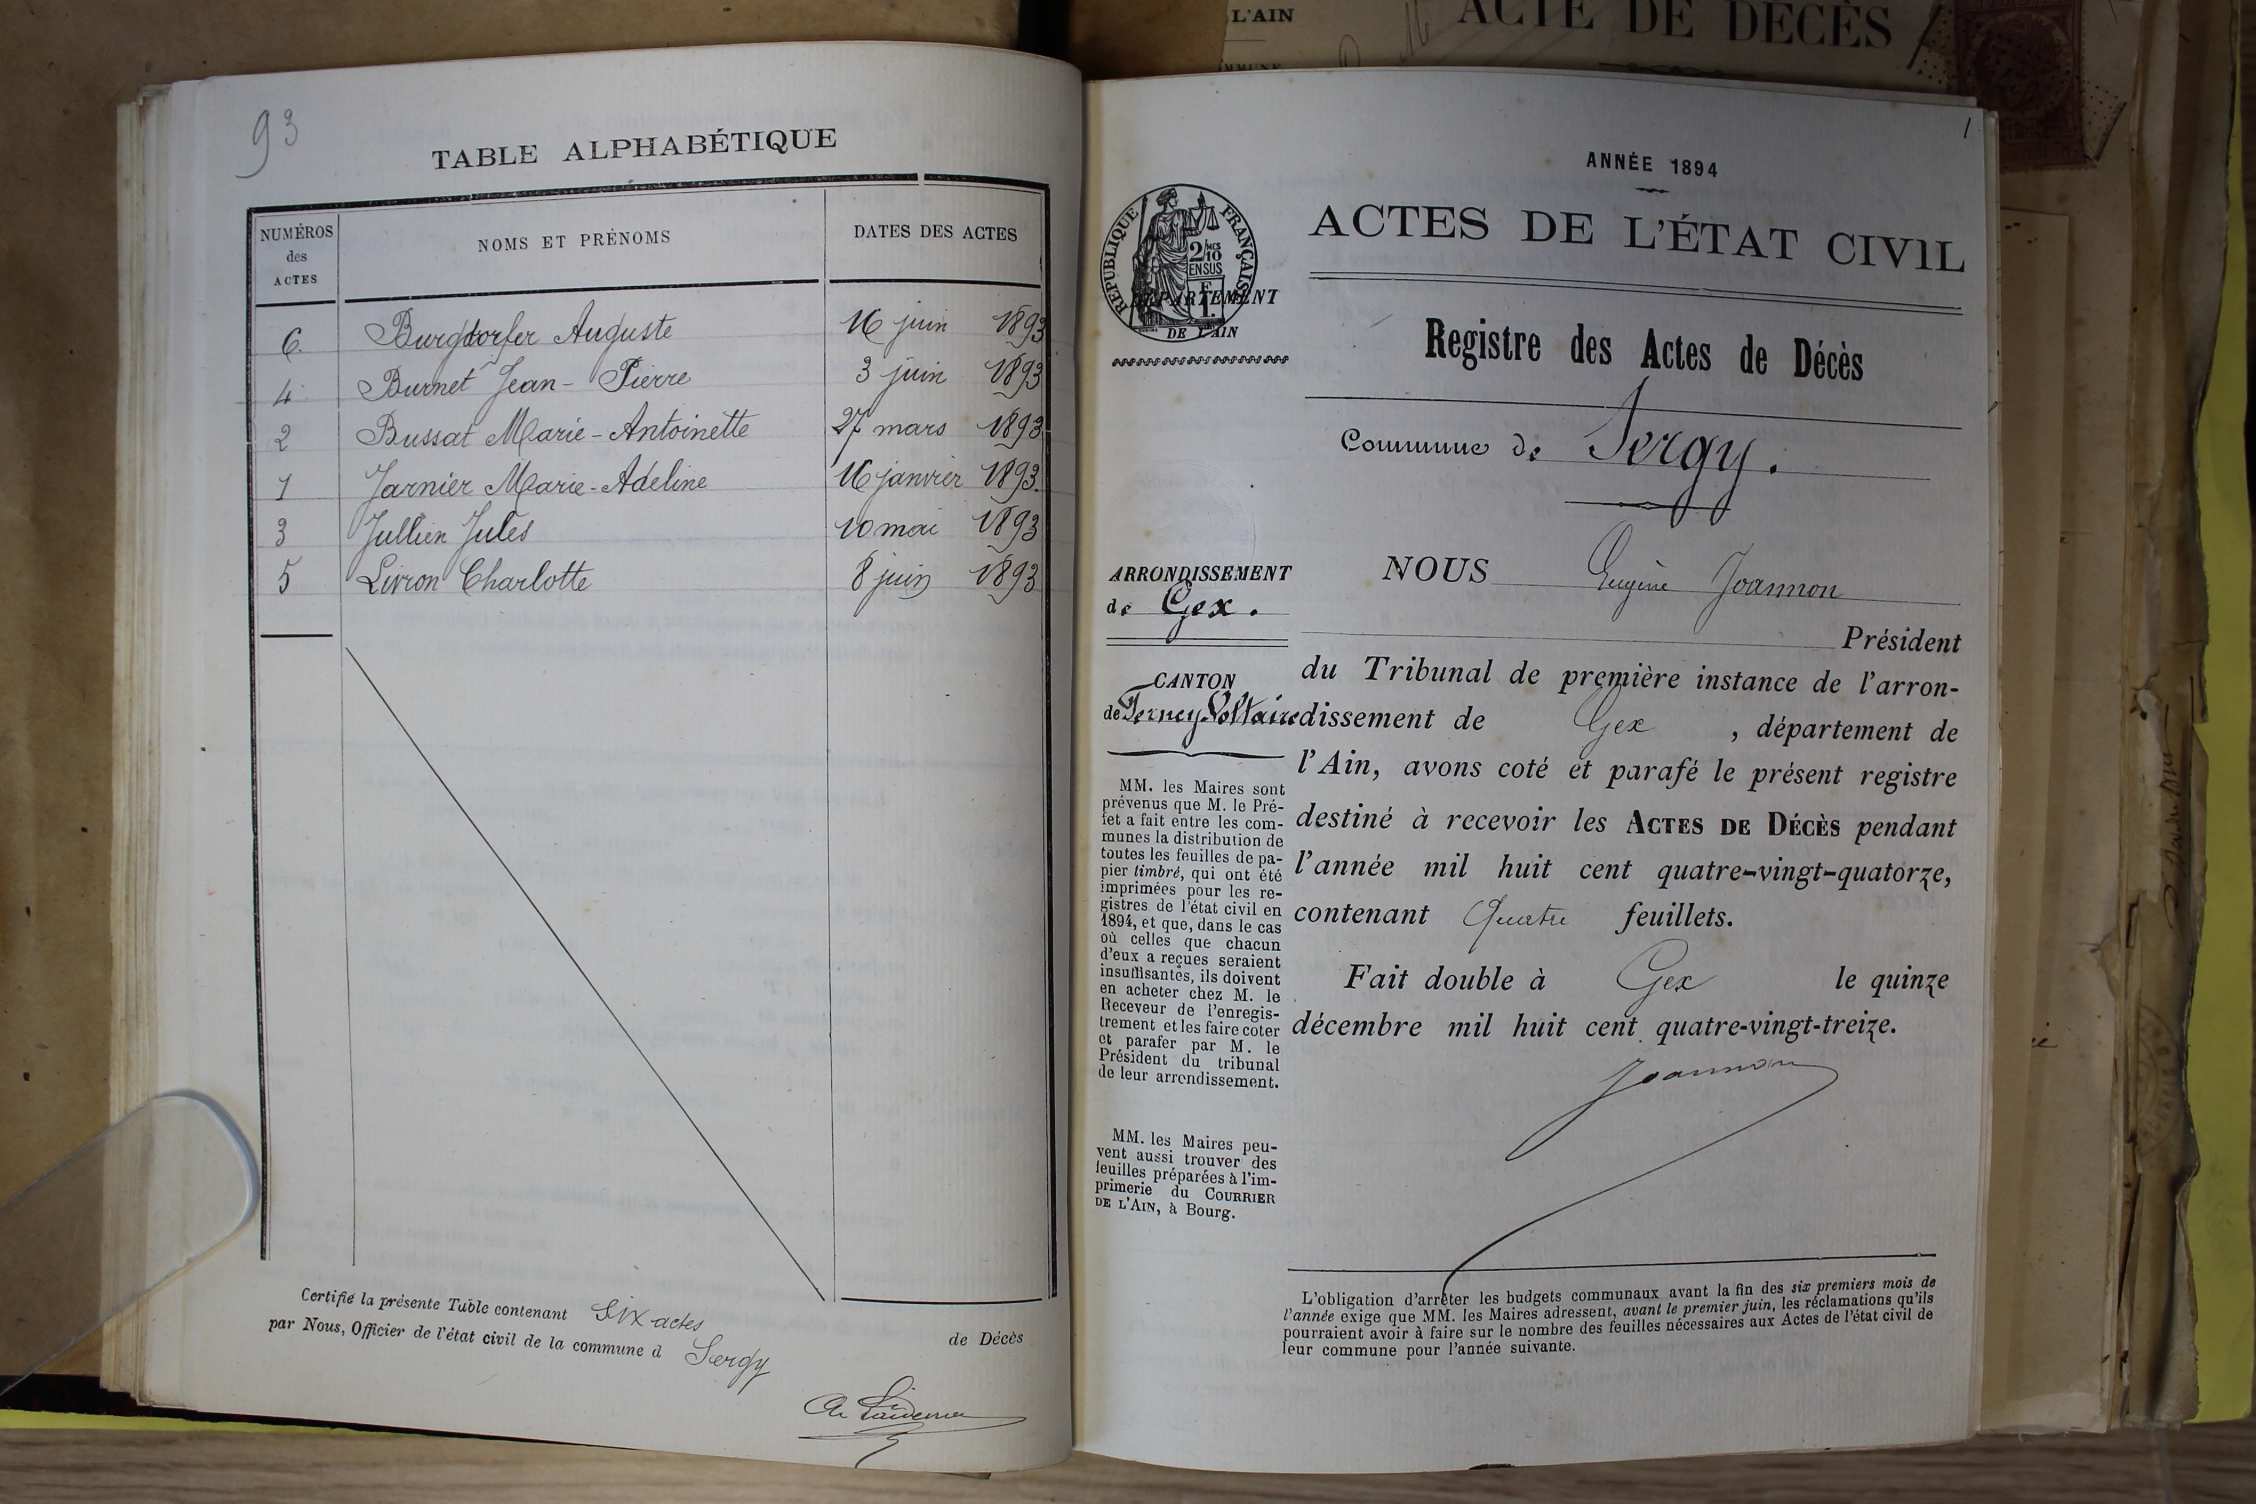 93
TABLE ALPHABÉTIQUE
NUMÉROS
des
ACTES
NOMS ET PRÉNOMS
DATES DES ACTES
6. Burgdorfer Auguste 16 juin 1893
4. Burnet Jean-Pierre 3 juin 1893
2 Bussat Marie-Antoinette 27 mars 1893
1 Jarnier Marie-Adeline 16 janvier 1893.
3 Jullien Jules 10 mai 1893
5 Livron Charlotte 8 juin 1893
Certifié la présente Table contenant six actes
de Décès
par Nous, Officier de l'état civil de la commune d Sergy
L'AIN
ACTE DE DÉCÈS
1
ANNÉE 1894
ACTES DE L'ÉTAT CIVIL
RÉPUBLIQUE FRANÇAISE
2/10 MES
EN SUS
F
1.
DÉPARTEMENT
DE L'AIN
Registre des Actes de Décès
Commune de Sergy.
ARRONDISSEMENT
de Gex.
CANTON
de Ferney-Voltaire
MM. les Maires sont
prévenus que M. le Pré-
fet a fait entre les com-
munes la distribution de
toutes les feuilles de pa-
pier timbré, qui ont été
imprimées pour les re-
gistres de l'état civil en
1894, et que, dans le cas
où celles que chacun
d'eux a reçues seraient
insuffisantes, ils doivent
en acheter chez M. le
Receveur de l'enregis-
trement et les faire coter
et parafer par M. le
Président du tribunal
de leur arrondissement.
MM. les Maires peu-
vent aussi trouver des
feuilles préparées à l'im-
primerie du COURRIER
DE L'AIN, à Bourg.
NOUS Eugène Joannon
Président
du Tribunal de première instance de l'arron-
dissement de Gex, département de
l'Ain, avons coté et parafé le présent registre
destiné à recevoir les ACTES DE DÉCÈS pendant
l'année mil huit cent quatre-vingt-quatorze,
contenant Quatre feuillets.
Fait double à Gex le quinze
décembre mil huit cent quatre-vingt-treize.
Joannon
L'obligation d'arrêter les budgets communaux avant la fin des six premiers mois de
l'année exige que MM. les Maires adressent, avant le premier juin, les réclamations qu'ils
pourraient avoir à faire sur le nombre des feuilles nécessaires aux Actes de l'état civil de
leur commune pour l'année suivante.